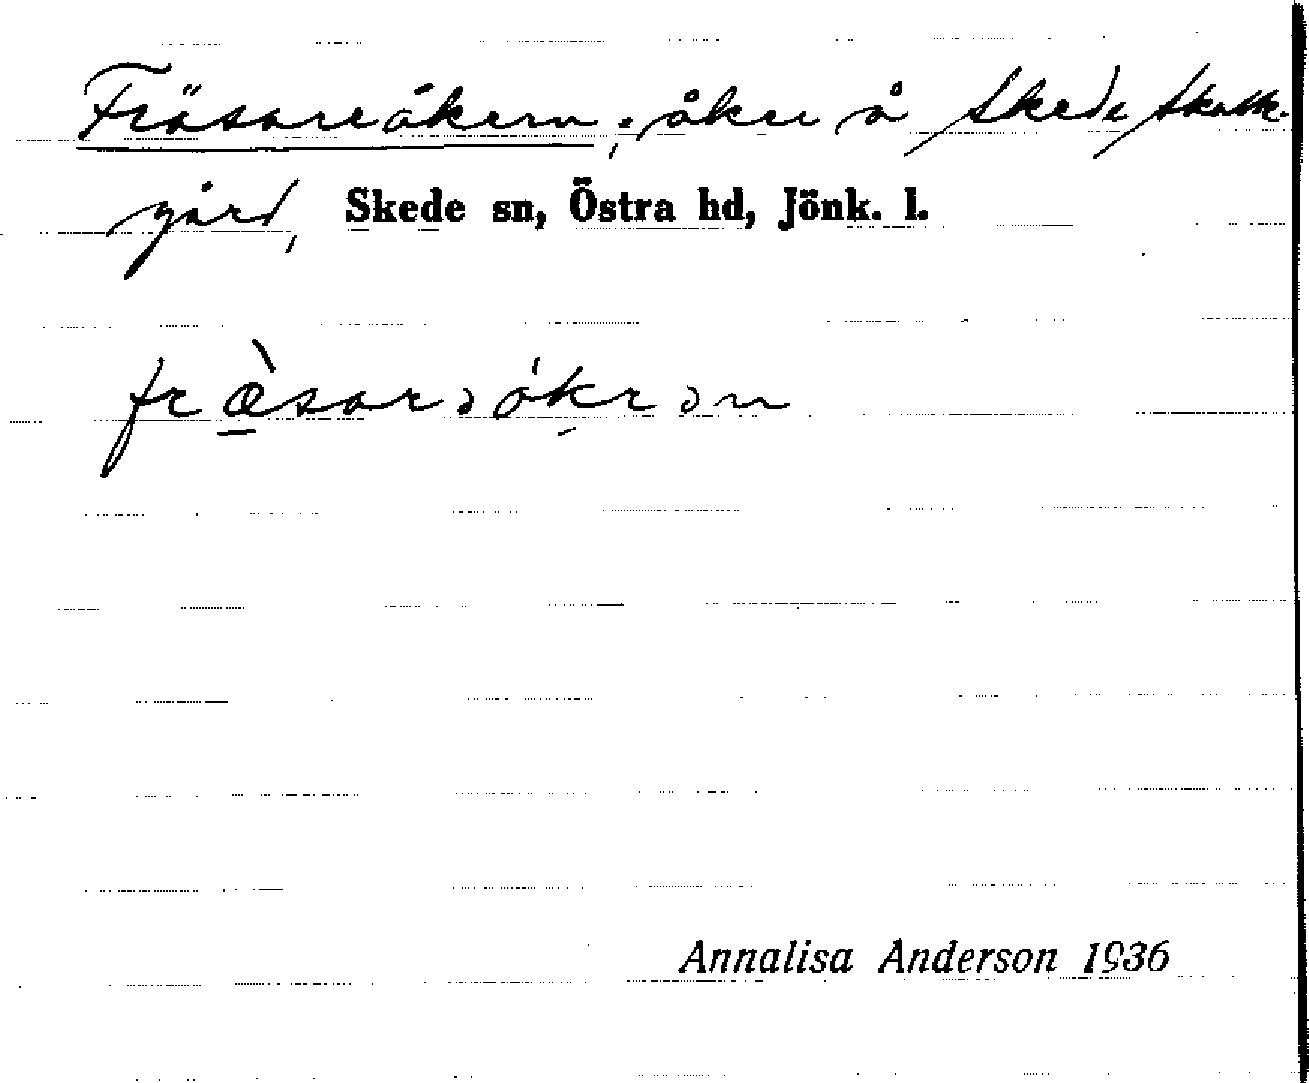 Fräsareåkern, åker å Skede Skatte-
gård, Skede sn, Östra hd, Jönk. l.
fræ̀sarəåkrən
Annalisa Anderson 1936